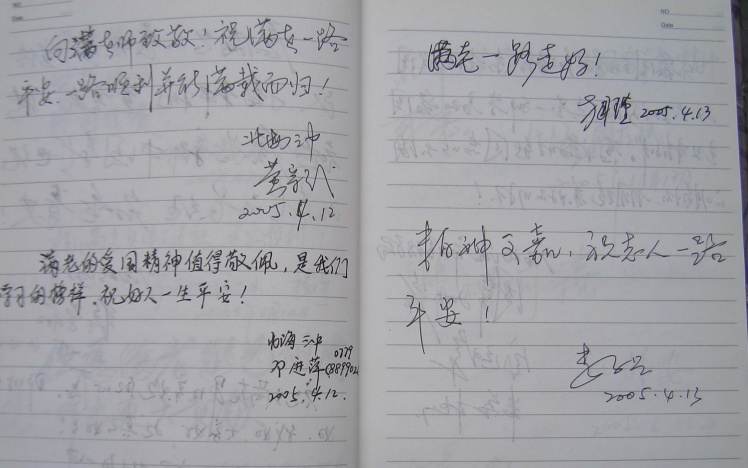 NO
Date
向满老师致敬！祝满老一路
平安、一路顺利并能满载而归！
北海三中
2005.4.12
满老的爱国精神值得敬佩，是我们
学习的榜样，祝好人一生平安！
北海三中
0779
2005.4.12.
NO
Date
满老一路走好！
2005.4.13
精神可嘉，祝老人一路
平安！
2005.4.13